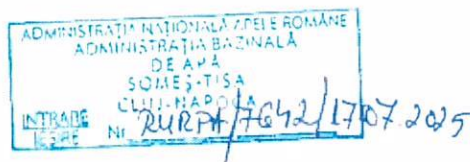 ADMINISTRAȚIA NAȚIONALĂ APELE ROMÂNE
ADMINISTRAȚIA BAZINALĂ
DE APĂ
SOMEȘ-TISA
CLUJ-NAPOCA
INTRARE
IEȘIRE Nr. RURPA/7642/17.07.2025